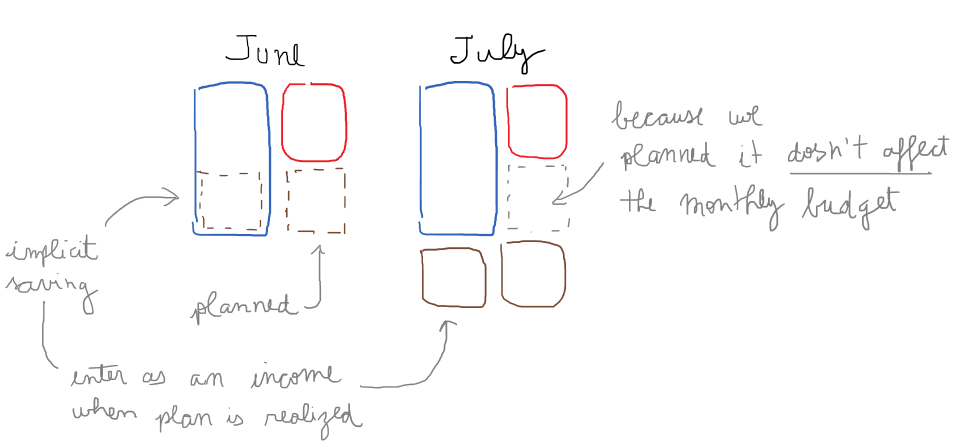 June
July
because we
planned it dosn't affect
the monthly budget
implicit
saving
planned
enter as an income
when plan is realized